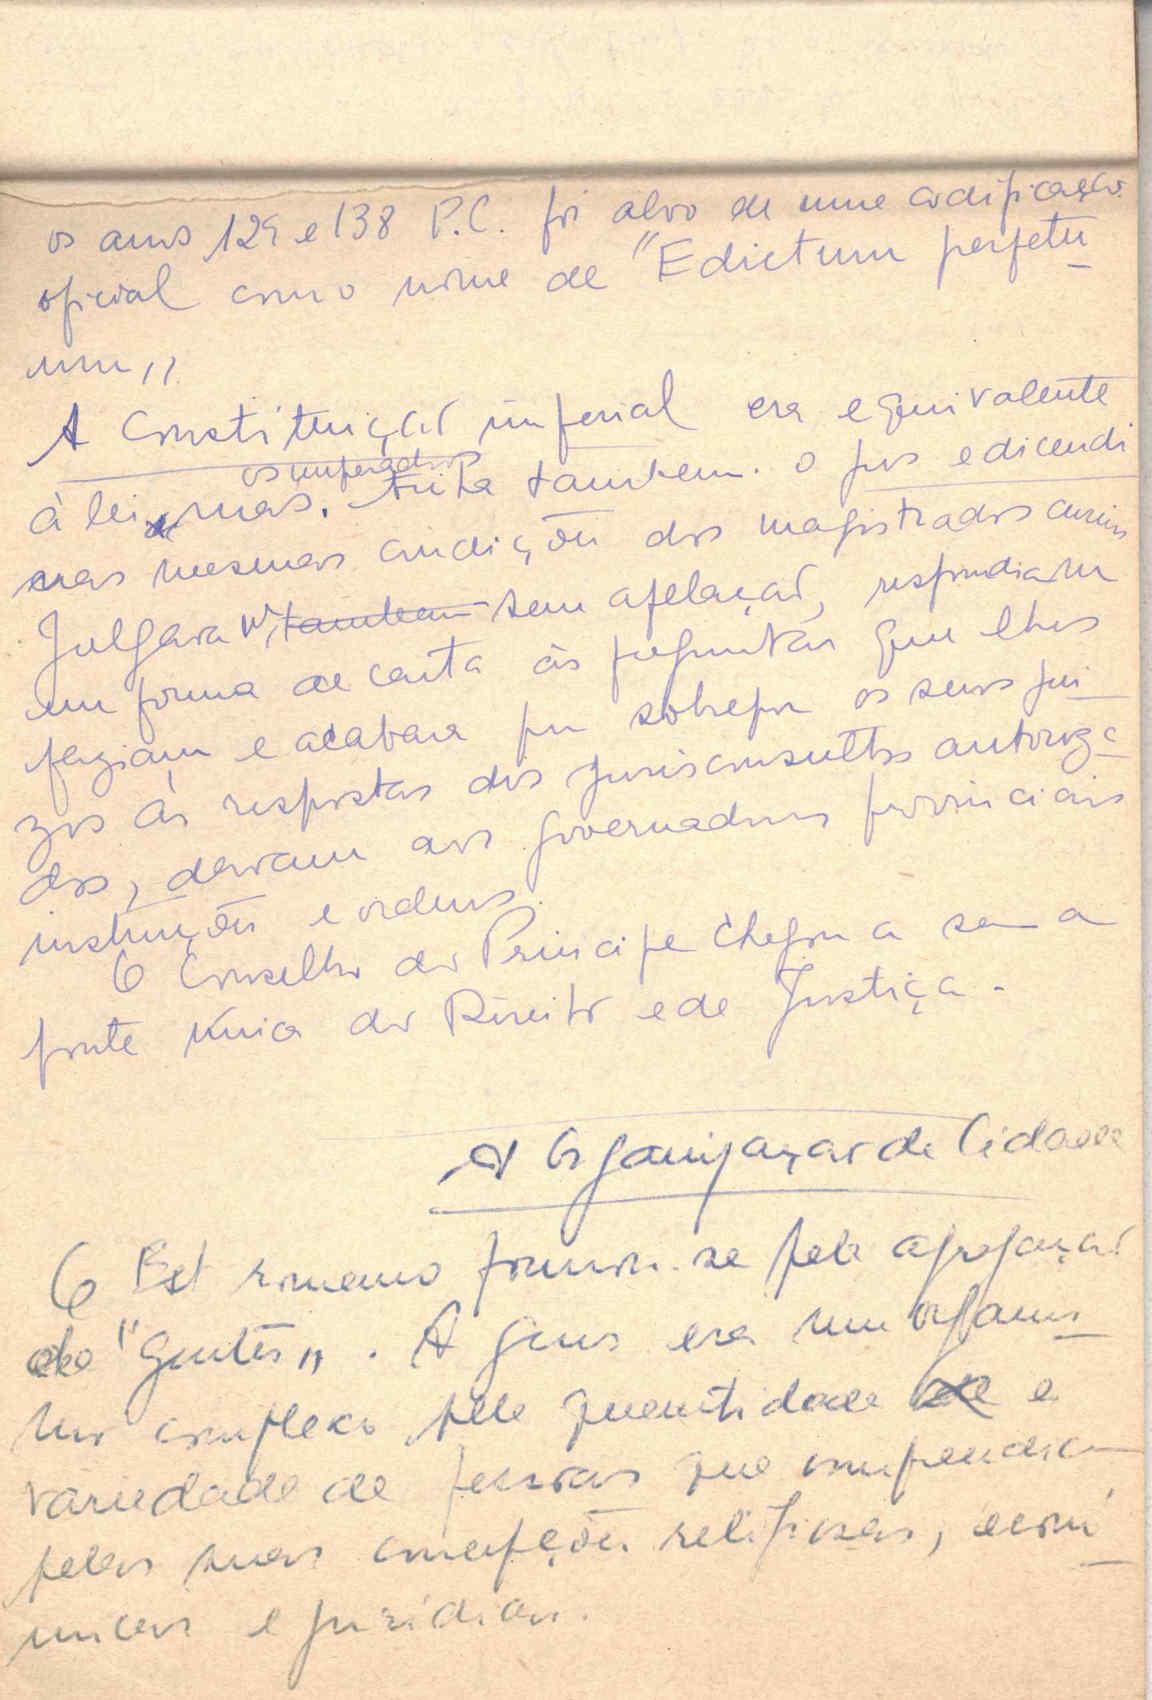 os anos 129 e 138 P.C. foi alvo de uma codificação
oficial com o nome de "Edictum perpetu
um"
A Constituição imperial era equivalente
os imperadores
à lei, mas. tinha tambem. o jus edicendi
nas mesmas condições dos magistrados curuis
Julgavam, tambem sem apelação, respondiam
em forma de carta às preguntas que lhes
faziam e acabara por sobrepor os seus jui
zos às respostas dos jurisconsultos autoriza
dos, davam aos governadores provinciais
instruções e ordens.
O Conselho do Principe chegou a ser a
fonte unica do Direito e de Justiça.
A Organização de Cidade
O Est romano formou-se pela agregação
de "Gentes". A gens era um organis
mo complexo pela quantidade e
variedade de pessoas que compreendia
pelas suas concepções religiosas, econó
micas e juridicas.